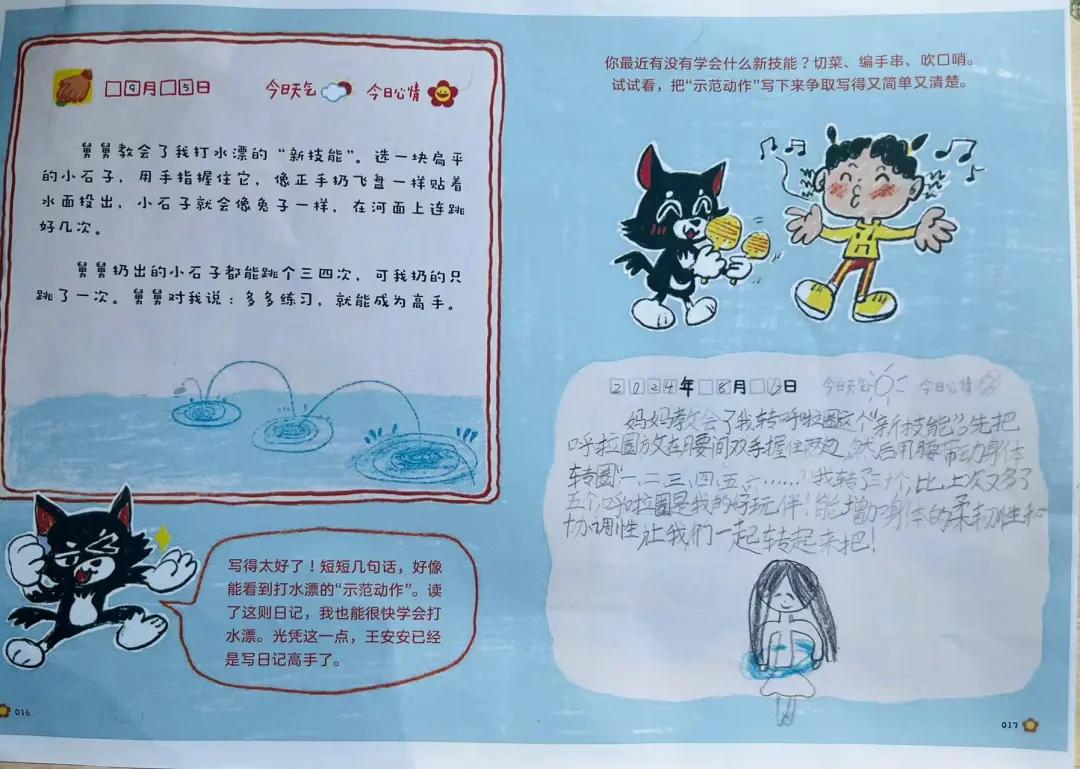 9月5日 今日天气 今日心情
舅舅教会了我打水漂的“新技能”。选一块扁平
的小石子，用手指握住它，像正手扔飞盘一样贴着
水面投出，小石子就会像兔子一样，在河面上连跳
好几次。
舅舅扔出的小石子都能跳个三四次，可我扔的只
跳了一次。舅舅对我说：多多练习，就能成为高手。
写得太好了！短短几句话，好像
能看到打水漂的“示范动作”。读
了这则日记，我也能很快学会打
水漂。光凭这一点，王安安已经
是写日记高手了。
016
你最近有没有学会什么新技能？切菜、编手串、吹口哨。
试试看，把“示范动作”写下来争取写得又简单又清楚。
2024年8月6日 今日天气 今日心情
妈妈教会了我转呼啦圈这个“新技能”，先把
呼拉圈放在腰间双手握住两边，然后用腰带动身体
转圈“一、二、三、四、五、六……”我转了三十个，比上次又多了
五个，呼啦圈是我的好玩伴！能增加身体的柔韧性和
协调性让我们一起转起来把！
017